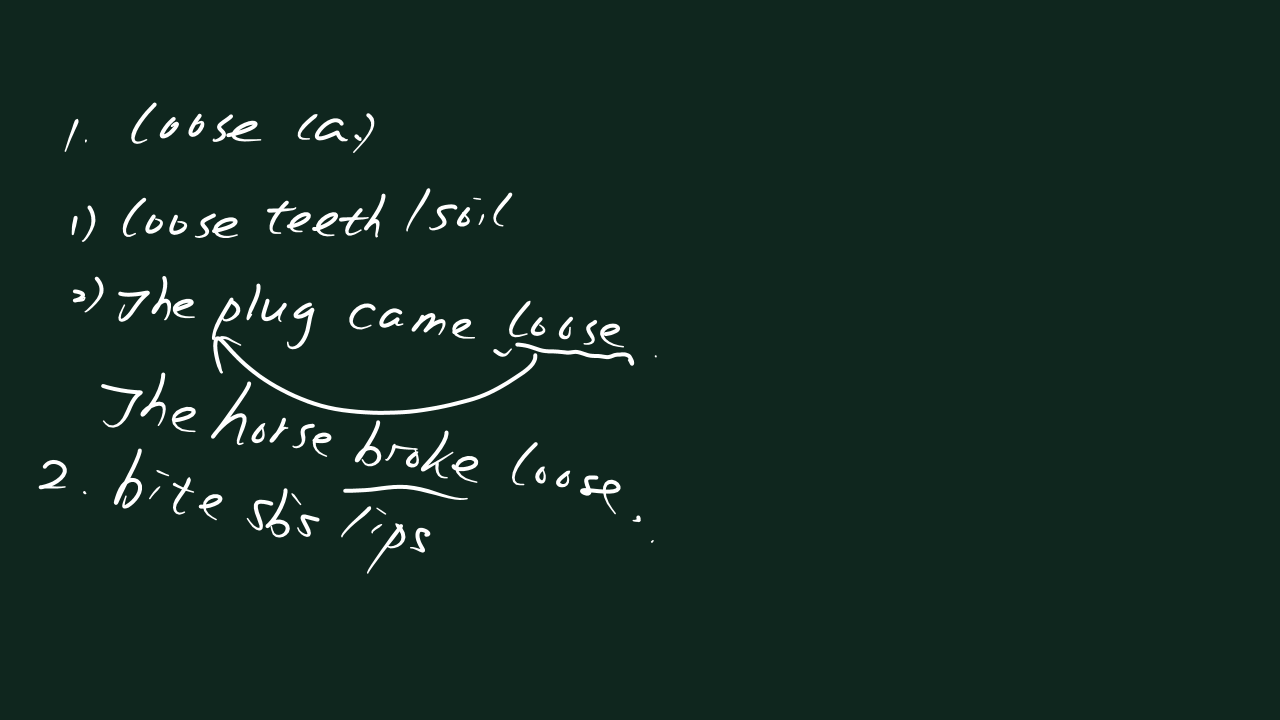 1. loose (a.)
1) loose teeth / soil
2) The plug came loose.
The horse broke loose.
2. bite sb's lips